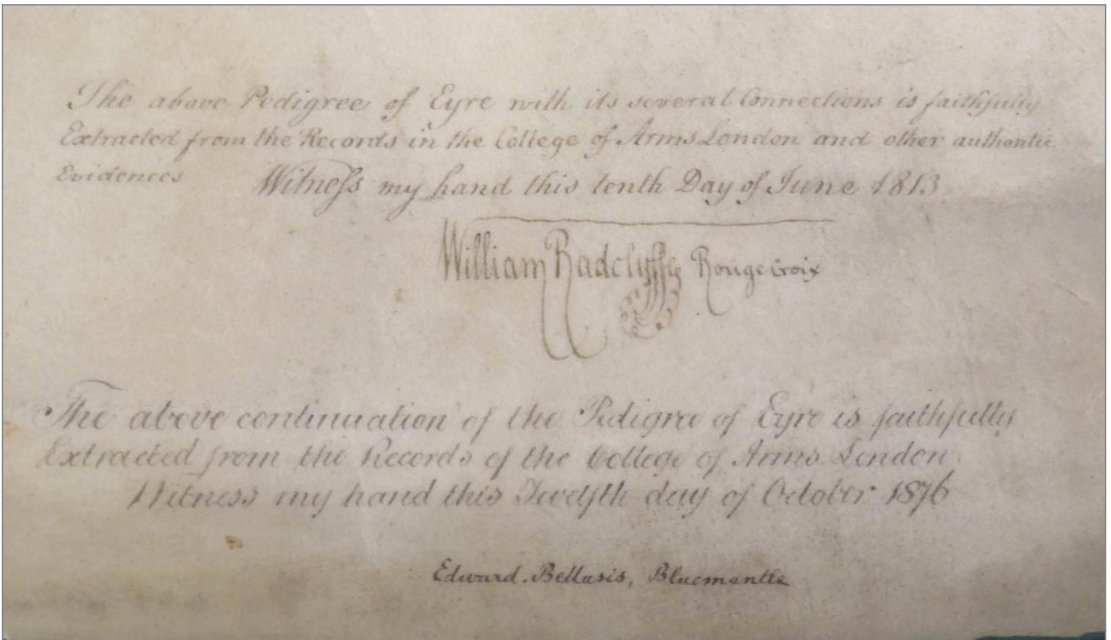 The above Pedigree of Eyre with its several Connections is faithfully
Extracted from the Records in the College of Arms London and other authentic
Evidences Witneſs my hand this tenth Day of June 1813
William Radclyffe Rouge Croix
The above continuation of the Pedigree of Eyre is faithfully
Extracted from the Records of the College of Arms London.
Witness my hand this Twelfth day of October 1876
Edward Bellasis, Bluemantle